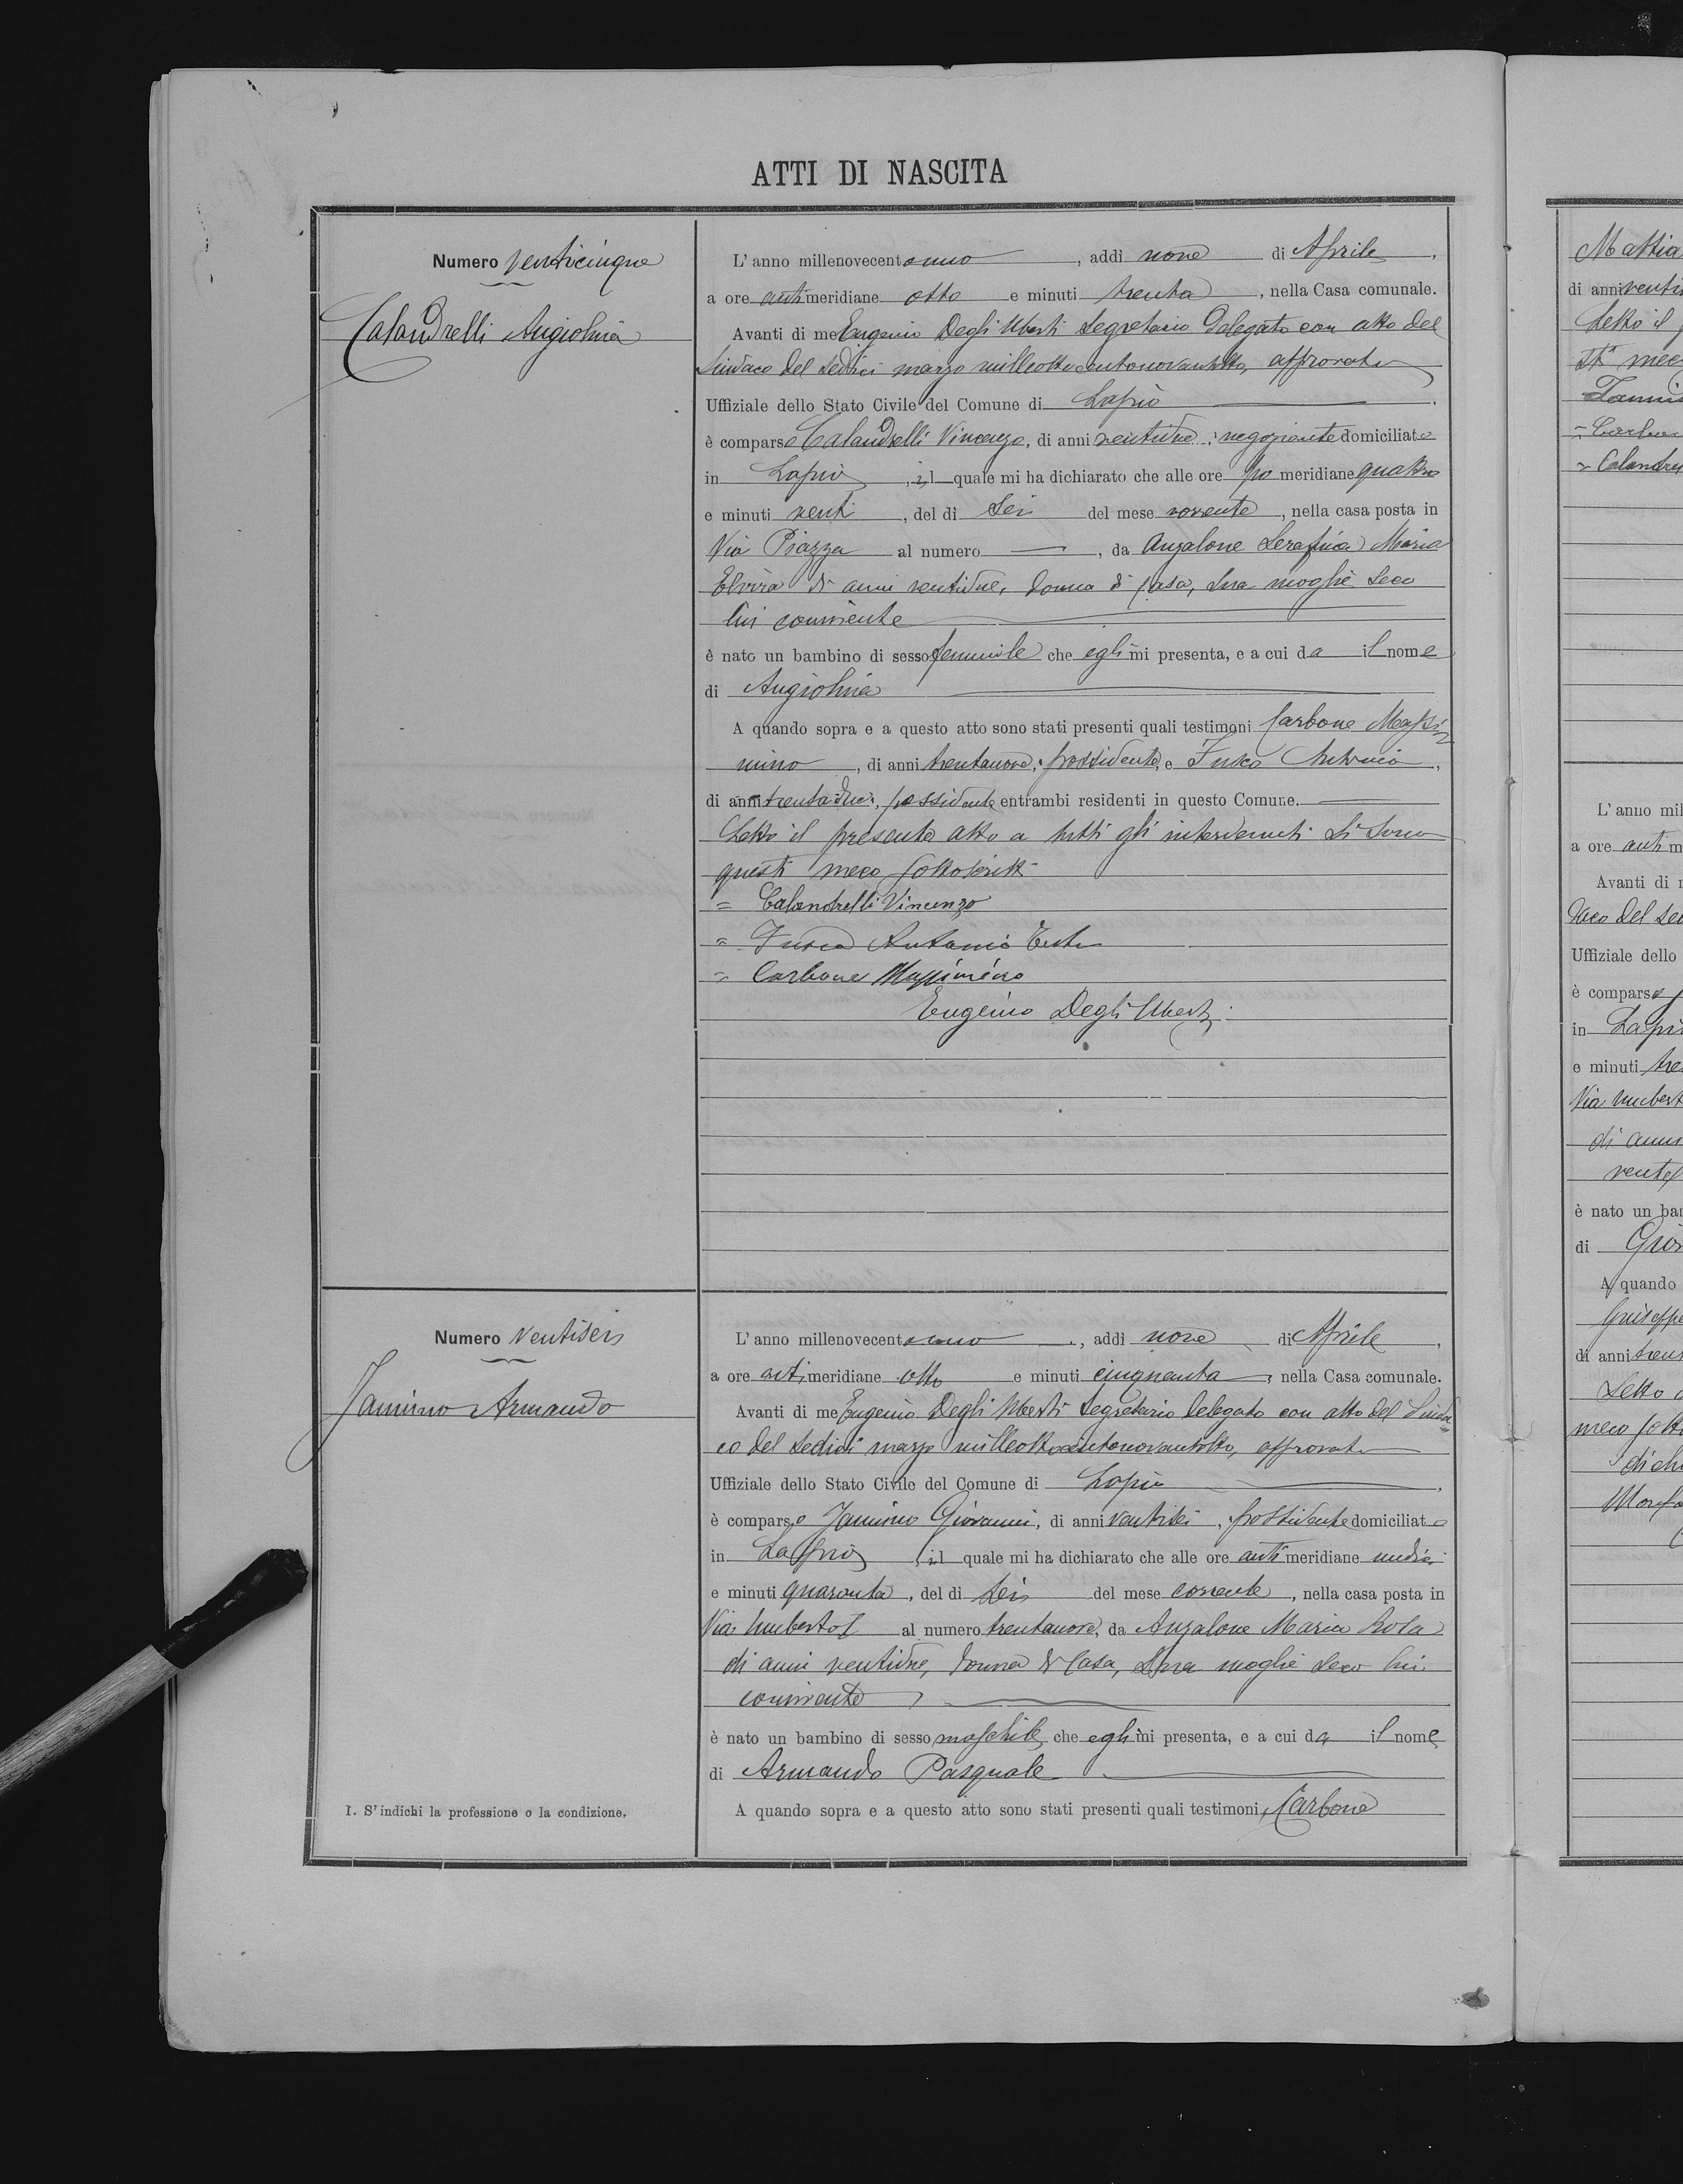 ATTI DI NASCITA
Numero venticinque
Calandrelli Angiolina
L'anno millenovecentouno, addì nove di Aprile,
a ore antimeridiane otto e minuti trenta, nella Casa comunale.
Avanti di me Eugenio Degli Uberti Segretario Delegato con atto del
Sindaco del Sedici marzo milleottocentonovantotto, approvato
Uffiziale dello Stato Civile del Comune di Lapio.
è comparso Calandrelli Vincenzo, di anni ventidue, negoziante domiciliato
in Lapio, il quale mi ha dichiarato che alle ore pomeridiane quattro
e minuti venti, del dì Sei del mese corrente, nella casa posta in
Via Piazza al numero —, da Anzalone Serafina Maria
Elvira di anni ventidue, donna di Casa, Sua moglie Seco
lui convivente
è nato un bambino di sesso femminile che egli mi presenta, e a cui da il nome
di Angiolina
A quando sopra e a questo atto sono stati presenti quali testimoni Carbone Massi=
mino, di anni trentanove, possidente, e Fusco Antonio,
di anni trentadue, possidente entrambi residenti in questo Comune.
Letto il presente atto a tutti gli intervenuti Si Sono
questi meco Sottoscritti
= Calandrelli Vincenzo
= Fusco Antonio Teste
= Carbone Massimino
Eugenio Degli Uberti
Numero Ventisei
Jannino Armando
L'anno millenovecentouno, addì nove di Aprile,
a ore antimeridiane otto e minuti cinquanta, nella Casa comunale.
Avanti di me Eugenio Degli Uberti Segretario Delegato con atto del Sinda=
co del Sedici marzo milleottocentonovantotto, approvato
Uffiziale dello Stato Civile del Comune di Lapio,
è comparso Jannino Giovanni, di anni ventisei, possidente domiciliato
in Lapio, il quale mi ha dichiarato che alle ore antimeridiane undici
e minuti quaranta, del dì Sei del mese corrente, nella casa posta in
Via Umberto I al numero trentanove, da Anzalone Maria Rosa
di anni ventidue, donna di Casa, Sua moglie Seco lui
convivente
è nato un bambino di sesso maschile che egli mi presenta, e a cui da il nome
di Armando Pasquale
A quando sopra e a questo atto sono stati presenti quali testimoni Carbone
1. S'indichi la professione o la condizione.
Mattia
di anni venti
Letto il
meco
Carbone
L'anno mil
a ore antim
Avanti di
Uffiziale dello
è comparso
in Lapio
e minuti tre
Via Umbert
di anni
è nato un ba
di Gio
A quando
Giuseppe
di anni tren
Letto
meco Sotto